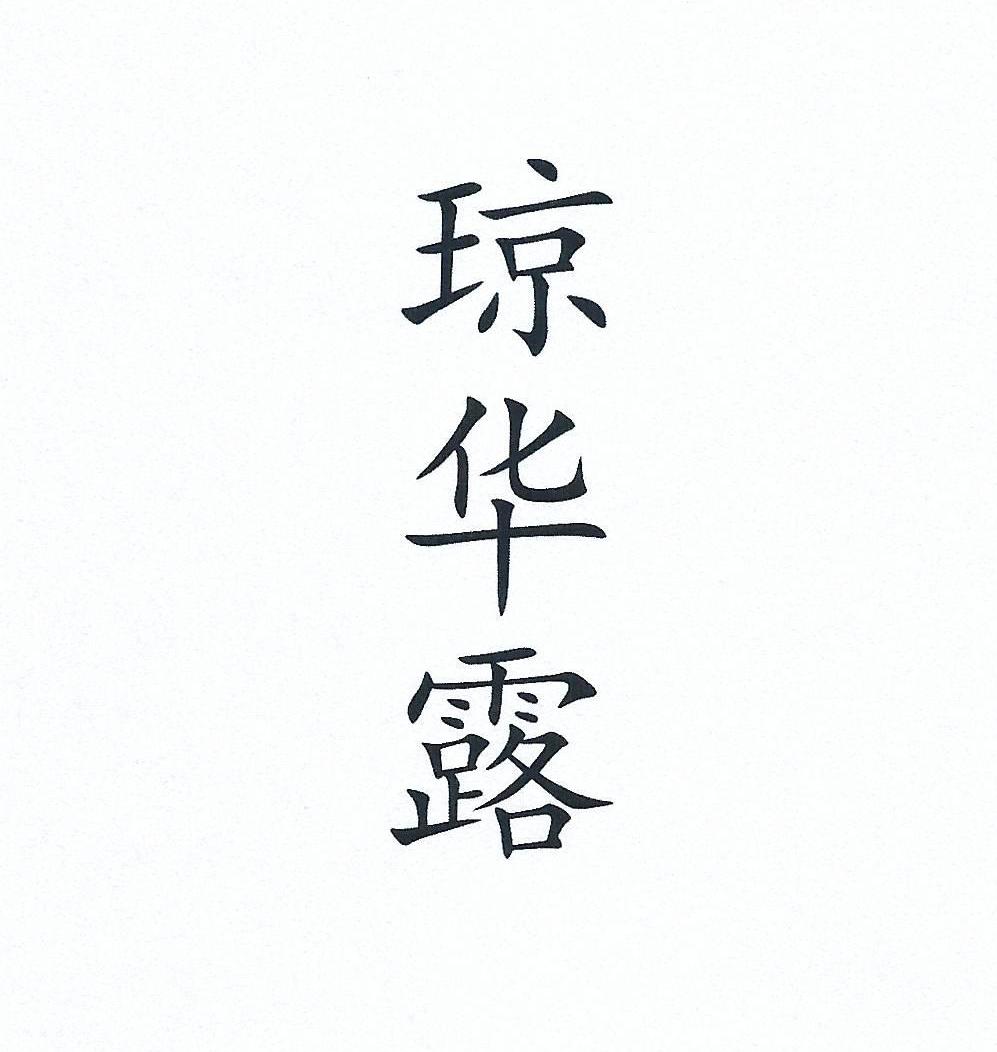 琼华露